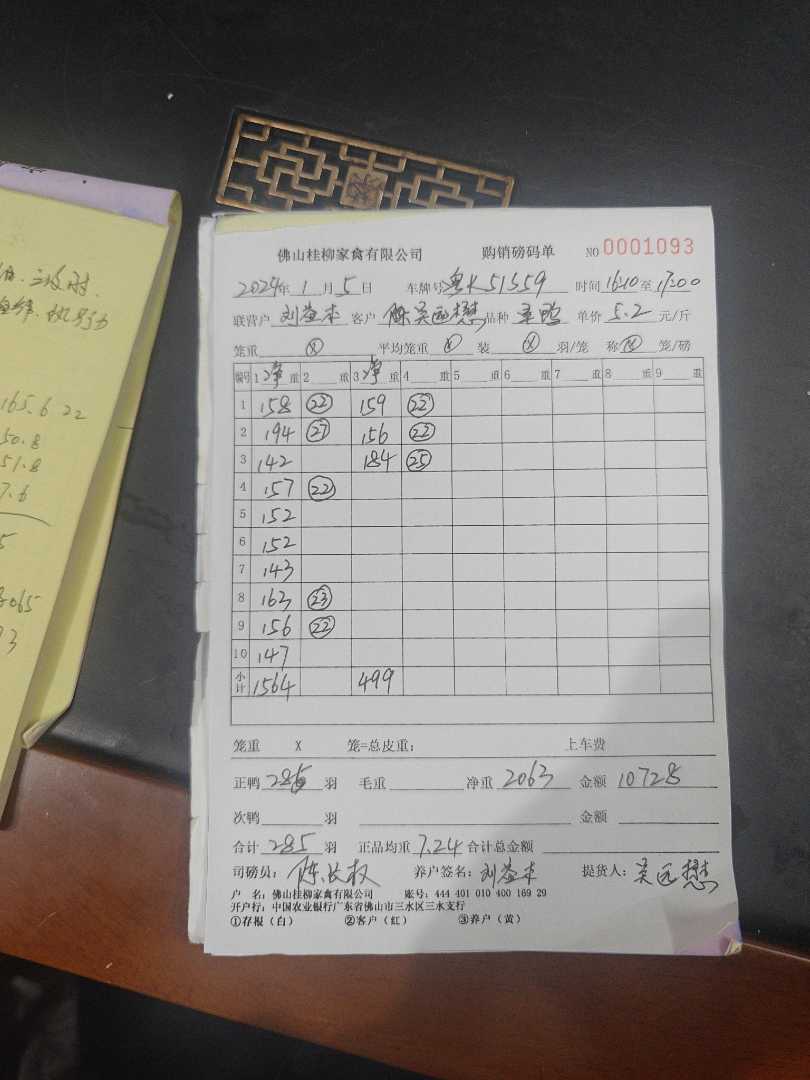 佛山桂柳家禽有限公司 购销磅码单 NO 0001093
2024年 1 月 5 日 车牌号 粤K51559 时间 16:10 至 17:00
联营户 刘益本 客户 陈吴远懋 品种 单价 5.2 元/斤
笼重 ⓧ 平均笼重 ⓧ 装 ⓧ 羽/笼 称 ⓧ 笼/磅
编号 1 净 重 2 重 3 净 重 4 重 5 重 6 重 7 重 8 重 9 重
1 158 22 159 22
2 194 27 156 22
3 142 184 25
4 157 22
5 152
6 152
7 143
8 163 23
9 156 22
10 147
小计 1564 499
笼重 X 笼=总皮重: 上车费
正鸭 285 羽 毛重 净重 2063 金额 10728
次鸭 羽 金额
合计 285 羽 正品均重 7.24 合计总金额
司磅员: 陈长权 养户签名: 刘益本 提货人: 吴远懋
户 名: 佛山桂柳家禽有限公司 账号: 444 401 010 400 169 29
开户行: 中国农业银行广东省佛山市三水区三水支行
①存根（白） ②客户（红） ③养户（黄）
165.6 22
50.8
51.8
7.6
5
065
93